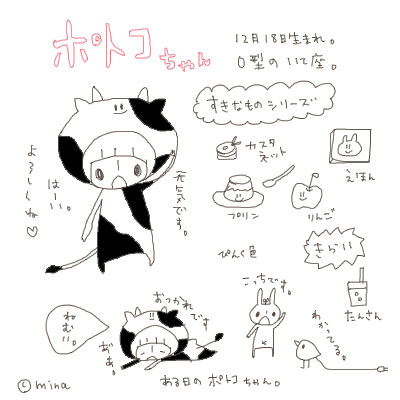 ポトコちゃん
12月18日生まれ。
O型のいて座。
すきなものシリーズ
カスタネット
えほん
プリン
りんご
ぴんく色
きらい
たんさん
よろしくね♡
はーい。
元気です。
こっちです。
わかってる。
ねむい。
おつかれです
あぢぁ。
ある日のポトコちゃん。
© mina